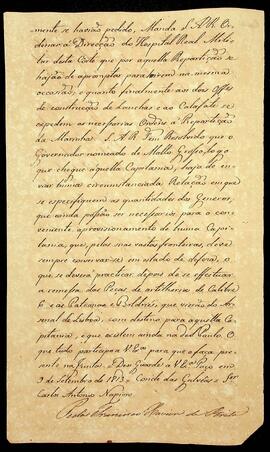 mente se havião pedido, Manda S.A.R. Or-
denar á Direcção do Hospital Real Mili-
tar desta Corte que por aquella Repartição se
hajão de apromptar para irem na mesma
occazião, e quanto finalmente aos dois Offes
de construcção de Lanchas e ao Calafate se
expedem as necessarias Ordens á Repartição
da Marinha. S.A.R. Tem Resolvido que o
Governador nomeado de Matto Grosso, logo
que chegue áquella Capitania, haja de en-
viar huma circunstanciada Relação em que
se especifiquem as quantidades de Generos,
que ainda possão ser necessarios para o con-
veniente aprovisionamento de huma Capi-
tania, que, pelas suas vastas fronteiras, deve
sempre conservar-se em estado de defeza, o
que se deverá practicar depois de se effeituar
a remessa das Peças de artilheria de Calibre
6 e as Palamenas e Soldres, que virão do Ar-
senal de Lisboa, com destino para aquella Ca-
pitania, e que existem ainda na de S. Paulo. O
que tudo participo a V.Exa para que o faça pre-
sente na Junta. Deos Guarde a V.Exa Paço em
3 de Setembro de 1813. Conde das Galvêas = Snr
Carlos Antonio Napion
João Francisco Xavier de